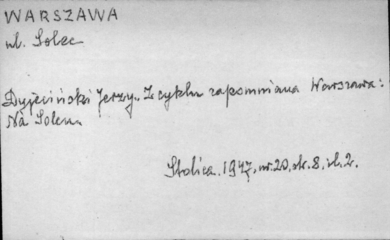 WARSZAWA
ul. Solec
Dyjeciński Jerzy. Z cyklu zapomniana Warszawa:
Na Solcu.
Stolica. 1947, nr. 20, str. 8, il. 2.